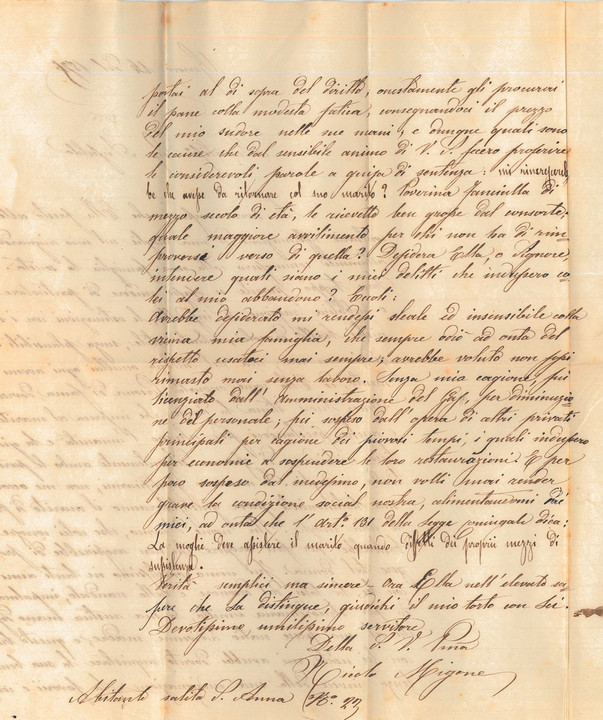 portai al di sopra del diritto, onestamente gli procurai
il pane colla modesta fatica, consegnandoci il prezzo
del mio sudore nelle sue mani, e dunque quali sono
le cause che dal sensibile animo di V. S. fecero proferire
le considerevoli parole a guisa di sentenza: mi rincrescereb
be che avesse da ritornare col suo marito? Poverina fanciulla di
mezzo secolo di età, le ricevette ben grosse dal consorte;
quale maggiore avvilimento per chi non ha di rim=
proverarsi verso di quella? Desidera Ella, o Signore
intendere quali siano i miei delitti che indussero co=
lei al mio abbandono? Eccoli:
Avrebbe desiderato mi rendessi sleale ed insensibile colla
vicina mia famiglia, che sempre odiò ad onta del
rispetto usatoci mai sempre; avrebbe voluto non fossi
rimasto mai senza lavoro. Senza mia cagione, fui
licenziato dall'Amministrazione del Gas, per diminuzio=
ne del personale; fui sospeso dall'opera di altri privati
principali per cagione dei piovosi tempi, i quali indussero
per economie a sospendere le loro restaurazioni. E per
poco sospeso dal medesimo, non volli mai render
grave la condizione social nostra, alimentandomi dai
miei, ad onta che l'Art.º 131 della legge coniugale dica:
La moglie deve assistere il marito quando difetti dei proprii mezzi di
sussistenza.
Verità semplici ma sincere - Ora Ella nell'elevato sa=
pere che La distingue, giudichi il mio torto con Lei.
Devotissimo umilissimo servitore
Della S. V. Ill.ma
Nicolo Migone
Abitante salita S. Anna Nº. 23